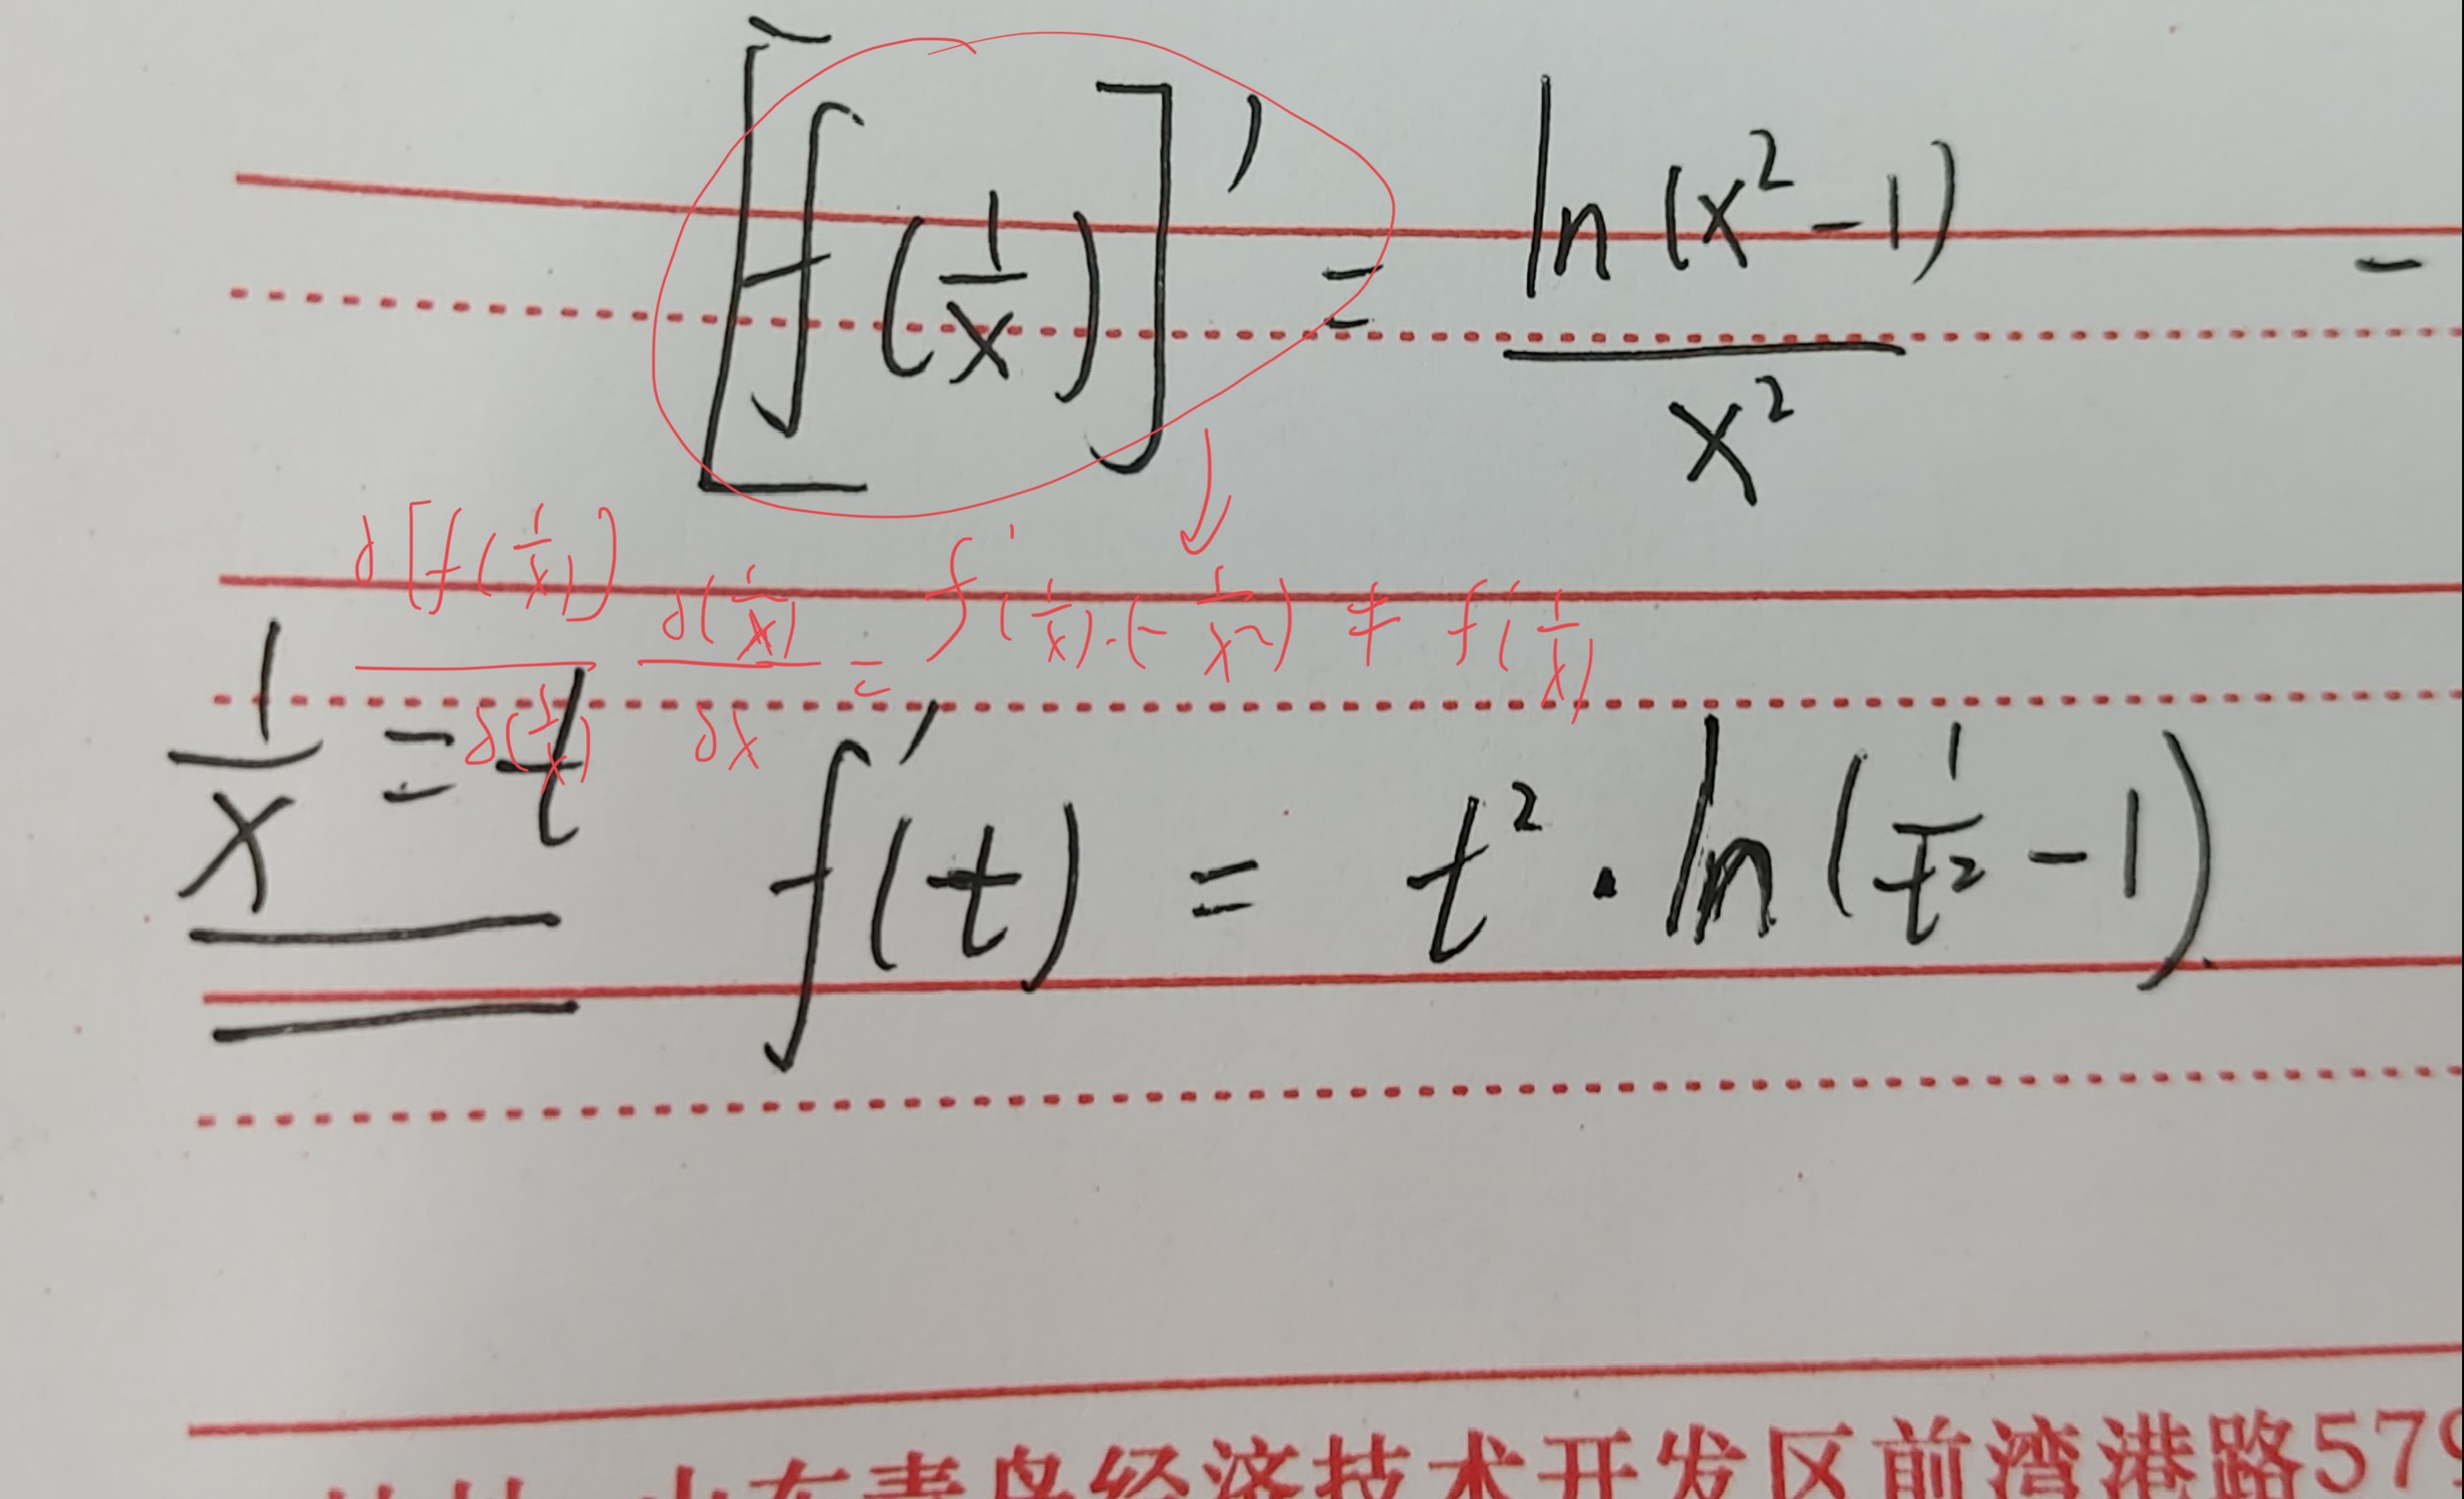 [f(1/x)]' = ln(x²-1)/x² -
d[f(1/x)]/d(1/x) d(1/x)/dx = f'(1/x)·(-1/x²) ≠ f'(1/x)
1/x = t f'(t) = t²·ln(1/t²-1)
山东青岛经济技术开发区前湾港路579